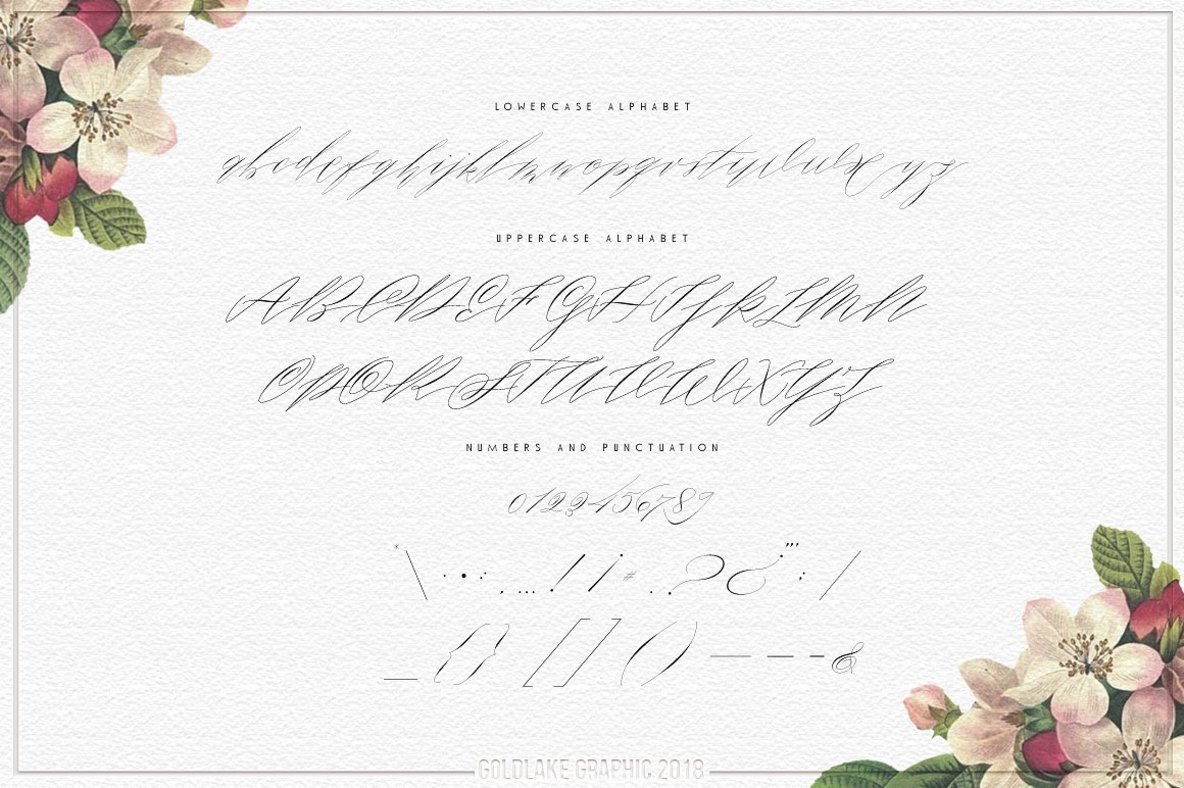 LOWERCASE ALPHABET
abcdefghijklmnopqrstuvwxyz
UPPERCASE ALPHABET
ABCDEFGHIJKLMN
OPQRSTUVWXYZ
NUMBERS AND PUNCTUATION
0123456789
* \ · • : , ... ! ¡ # . , ? ¿ "' ; /
_ { } [ ] ( ) — – - &
GOLDLAKE GRAPHIC 2018